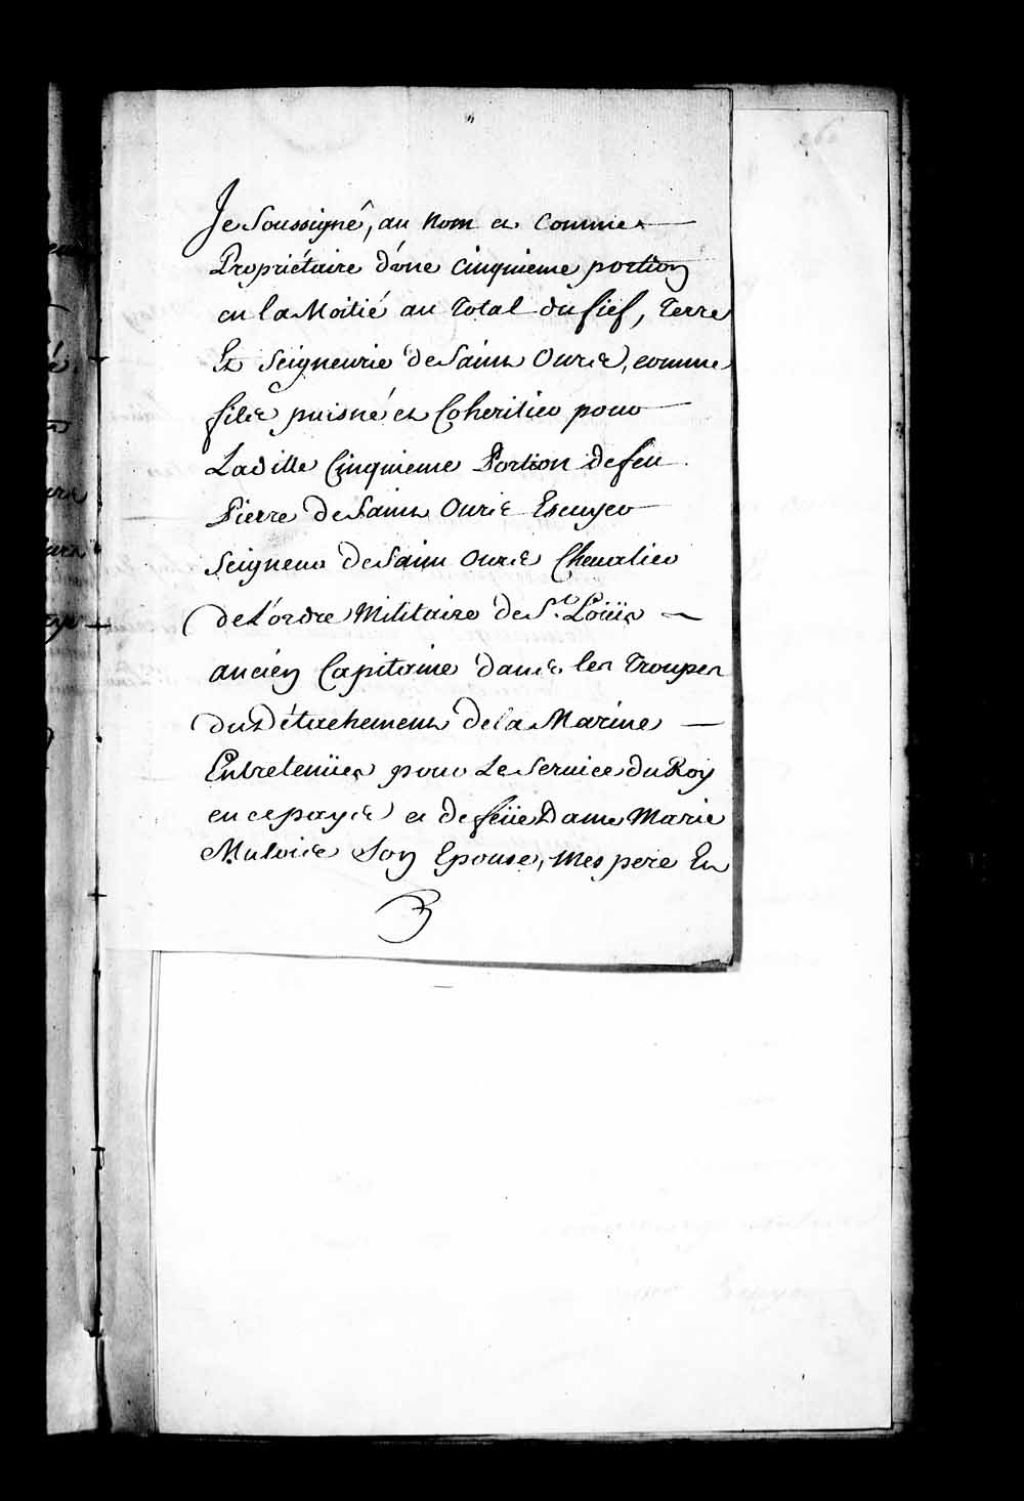 Je Soussigné, au Nom et Comme
Propriétaire d'une Cinquieme portion
en la Moitié au Total du fief, Terre
Et Seigneurie de Saint Ours, comme
fils puisné et Coheritier pour
Ladille Cinquieme Portion de feu
Pierre de Saint Ours Escuyer
Seigneur de Saint Ours Chevalier
de L'ordre Militaire de St. Loüis
ancien Capitaine dans les Troupes
du Détachement de la Marine
Entretenües pour Le Service du Roy
en ce pays et de feüe Dame Marie
Mulois Son Epouse, Mes pere Et